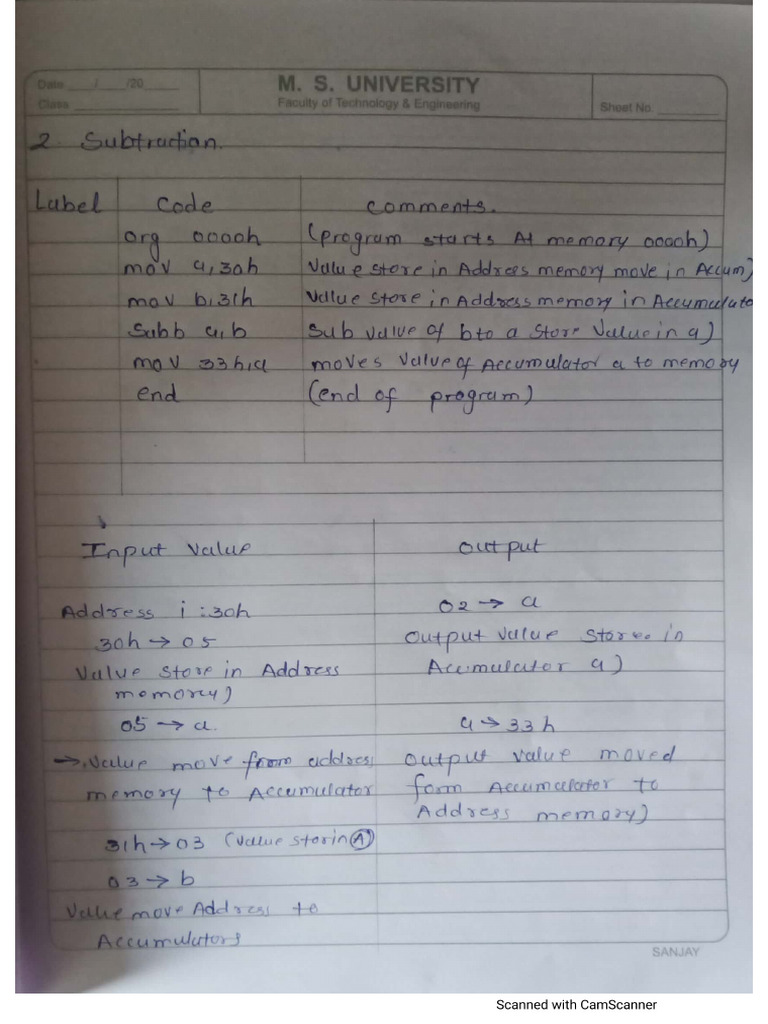 Date / /20
Class
M. S. UNIVERSITY
Faculty of Technology & Engineering
Sheet No.
2. Subtraction.
Label Code Comments.
org 0000h (program starts At memory 0000h)
mov a,30h Value store in Address memory move in Accum)
mov b,31h Value store in Address memory in Accumulato
Subb a,b Sub value of b to a Store Value in a)
mov 33h,a moves Value of Accumulator a to memory
end (end of program)
Input Value Output
Address i : 30h 02 → a
30h → 05 Output Value Store in
Value store in Address Accumulator a)
memorey)
05 → a. a → 33h
→ Value move from addres Output Value moved
memory to Accumulator form Accumulator to
Address memory)
31h → 03 (Value storin A)
03 → b
Value move Address to
Accumulators
SANJAY
Scanned with CamScanner